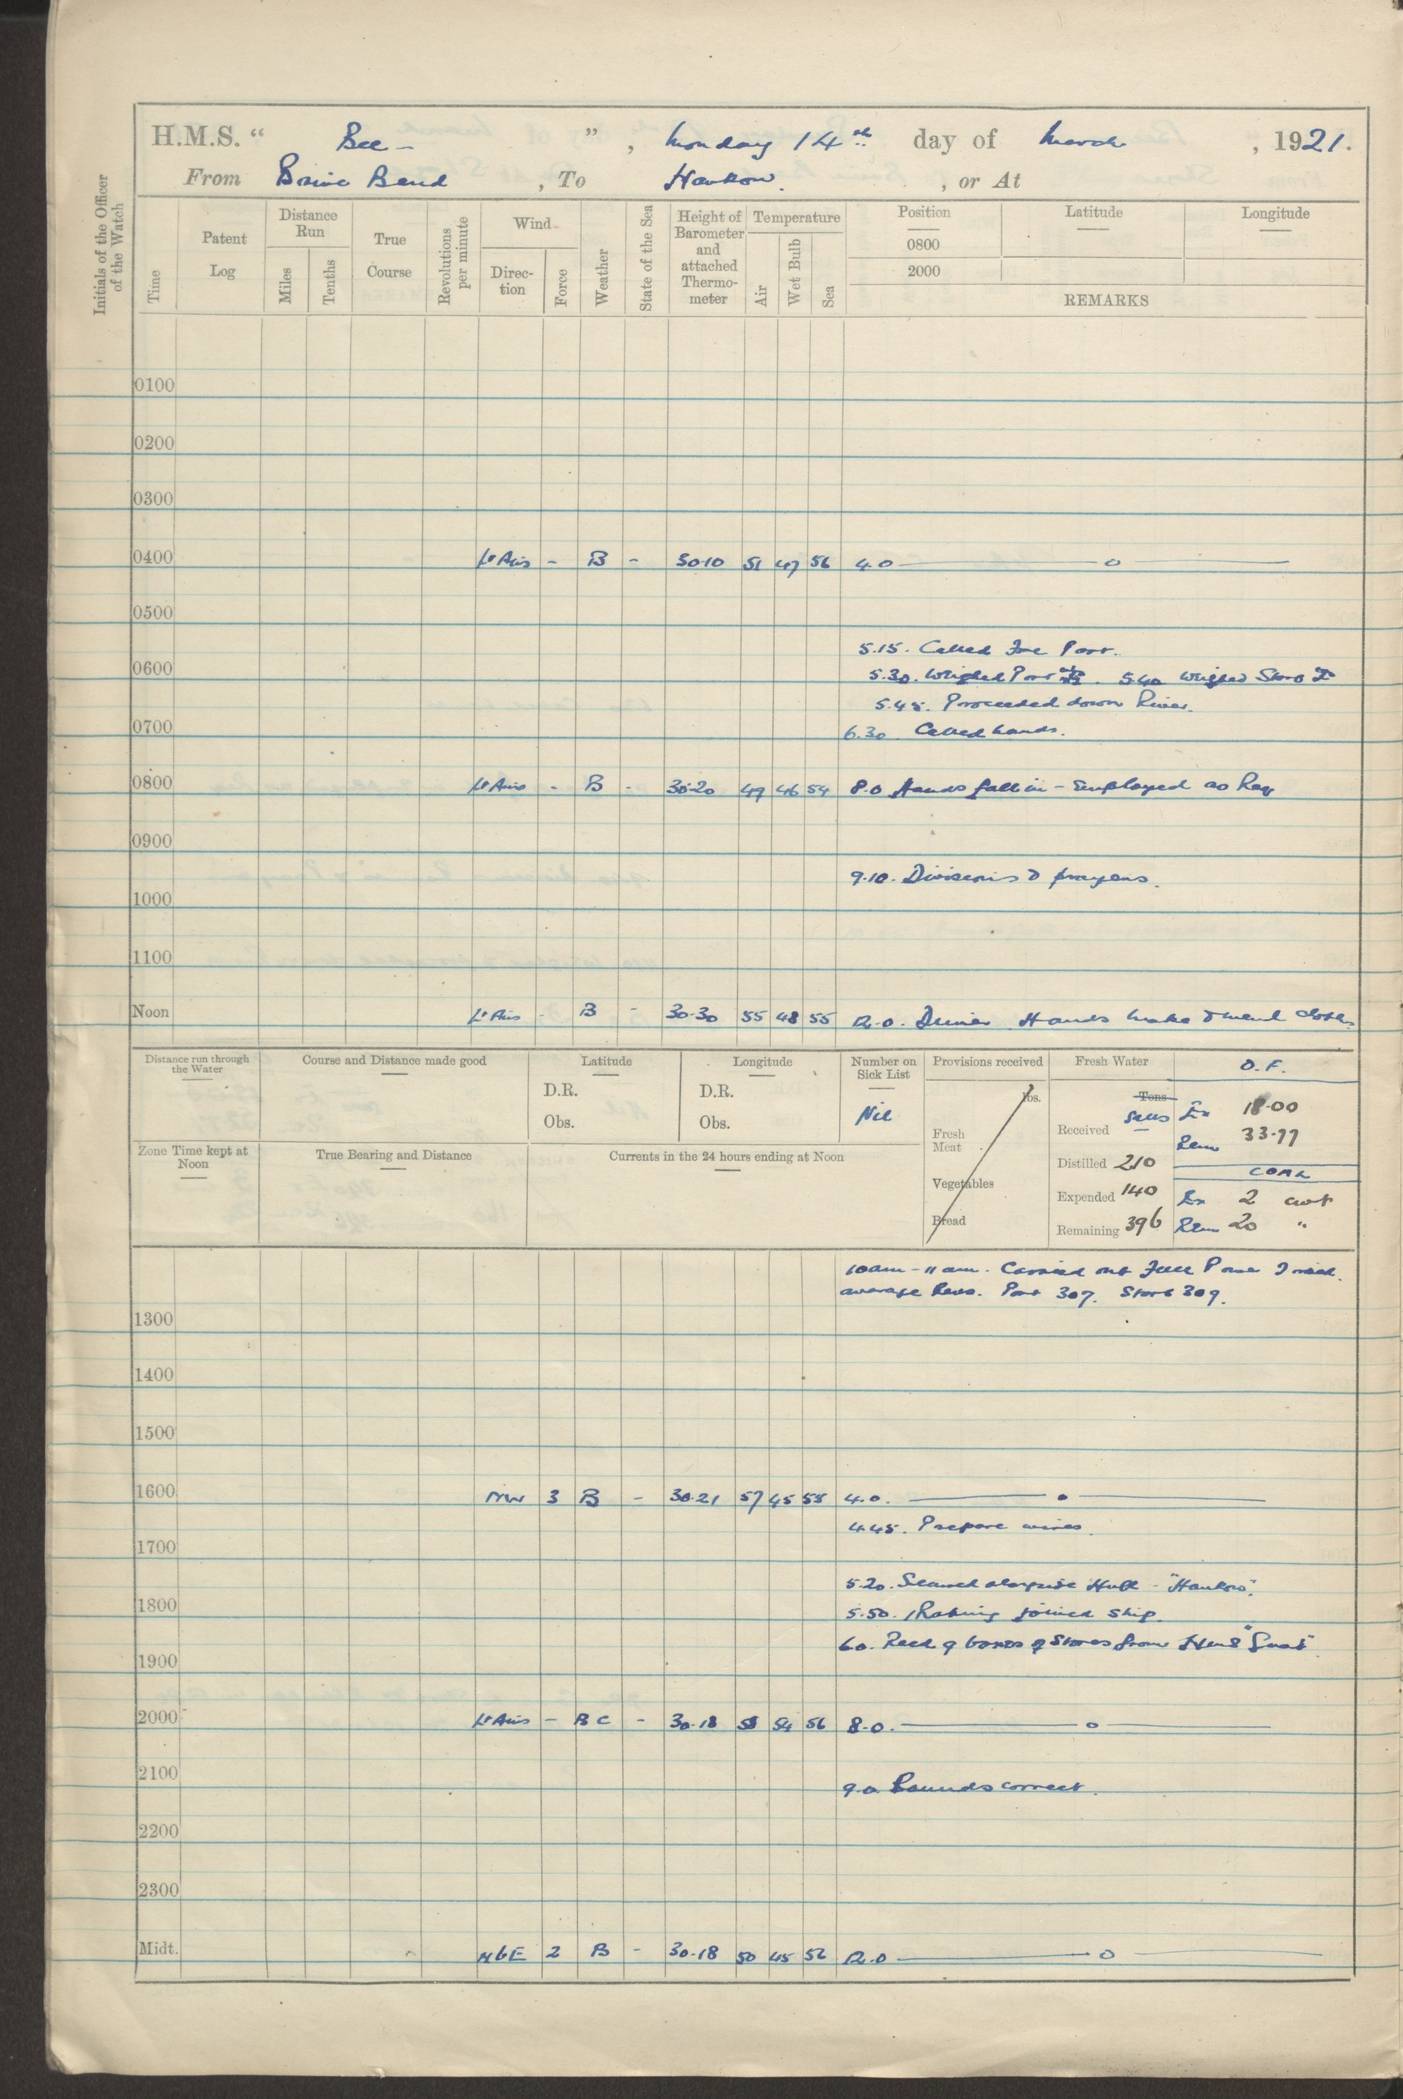 H.M.S. “ Bee - ” , Monday 14th day of March , 1921.
From Bend , To Hankow. , or At
Initials of the Officer of the Watch
Time
Patent Log
Distance Run
Miles
Tenths
True Course
Revolutions per minute
Wind
Direction
Force
Weather
State of the Sea
Height of Barometer and attached Thermometer
Temperature
Air
Wet Bulb
Sea
Position
Latitude
Longitude
0800
2000
REMARKS
0100
0200
0300
0400 Lt Airs - B - 30·10 51 47 56 4.0 — o —
0500
5.15. Called Fore Part.
0600 5.30. Weighed Port . 5.40 Weighed Starb
5.45. Proceeded down River.
0700 6.30 Called hands.
0800 Lt Airs - B - 30·20 49 46 54 8.0 Hands fall in - Employed as Req
0900
9.10. Divisions & prayers.
1000
1100
Noon Lt Airs - B - 30·30 55 48 55 12.0. Dinner. Hands make & mend clothes
Distance run through the Water
Course and Distance made good
Latitude
D.R.
Obs.
Longitude
D.R.
Obs.
Number on Sick List
Nil
Provisions received
lbs.
Fresh Meat
Vegetables
Bread
Fresh Water
Tons
Galls
Received —
Distilled 210
Expended 140
Remaining 396
O.F.
Ex 18·00
Rem 33·77
COAL
Ex 2 cwt
Rem 20 "
Zone Time kept at Noon
True Bearing and Distance
Currents in the 24 hours ending at Noon
10am - 11am. Carried out Full Power Trial.
average Revs. Port 307. Starb 309.
1300
1400
1500
1600 NW 3 B - 30·21 57 45 55 4.0. — o —
4.45. Prepare wires.
1700
5.20. Secured alongside Hulk - "Hankow".
1800 5.50. 1 Rating joined ship.
6.0. Recd 9 boxes of Stores from HMS "Gnat"
1900
2000 Lt Airs - BC - 30·18 58 54 56 8.0. — o —
2100 9.0 Rounds correct.
2200
2300
Midt. NbE 2 B - 30·18 50 45 52 12.0 — o —